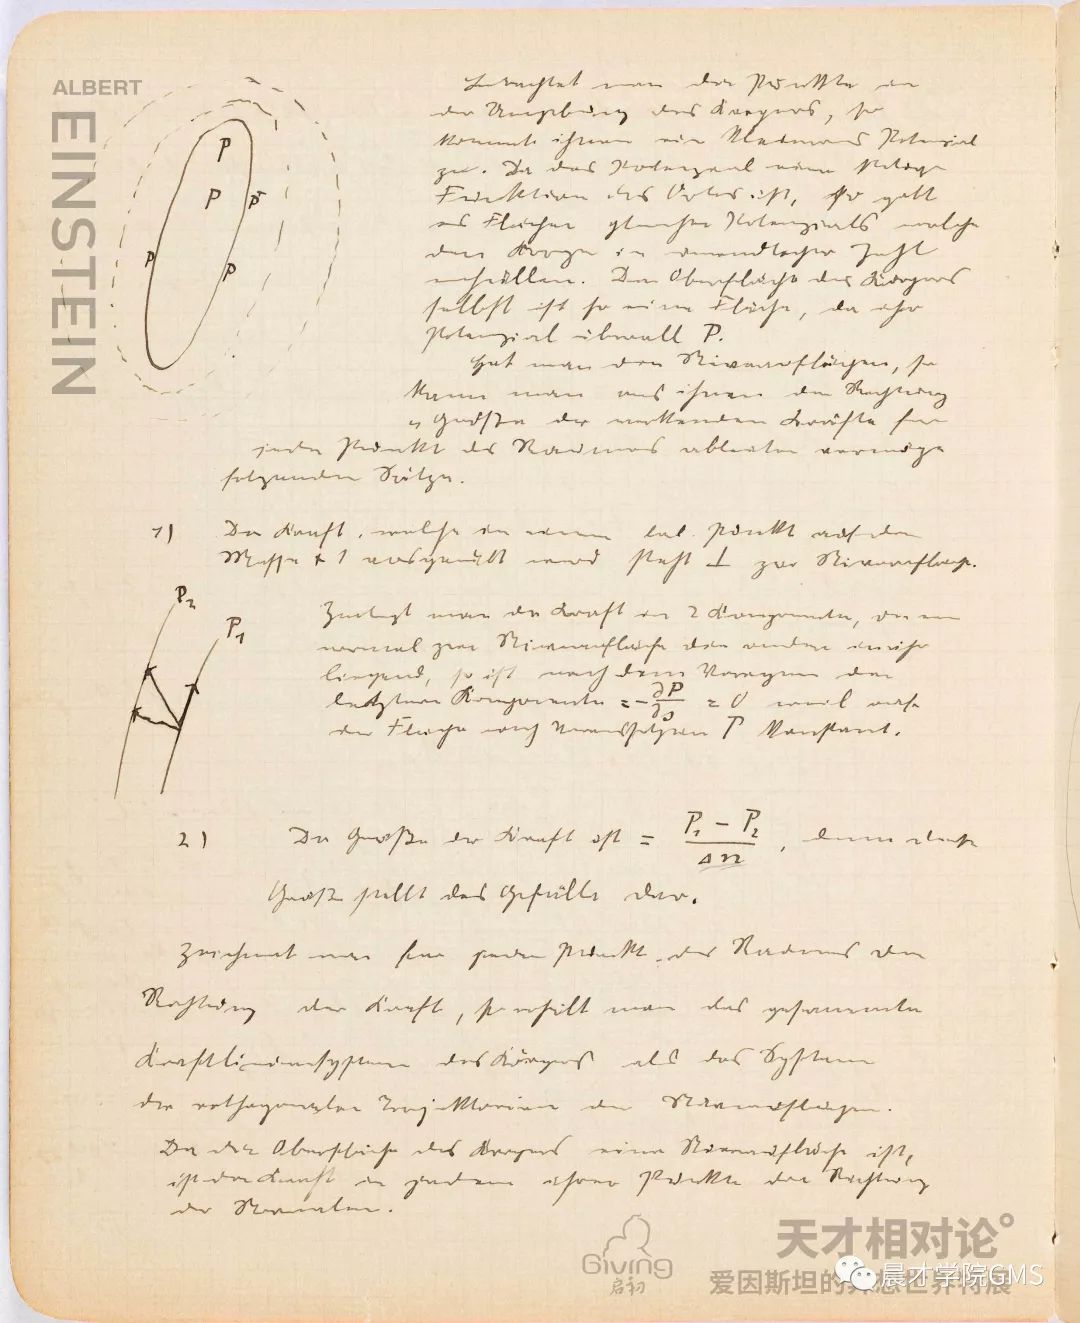 ALBERT
EINSTEIN
Betrachtet man die Punkte in
der Umgebung des Körpers, so
kommt ihnen ein Potenzial
zu. Da das Potenzial eine stetige
Funktion des Ortes ist, so gibt
es Flächen gleichen Potenzials welche
den Körper in unendlicher Zahl
umhüllen. Die Oberfläche des Körpers
selbst ist so eine Fläche, da ihr
Potenzial überall P.
Hat man die Niveauflächen, so
kann man aus ihnen die Richtung
u Größe der wirkenden Kräfte für
jeden Punkt des Raumes ableiten vermöge
folgender Sätze.
P
P
P
P
P
1) Die Kraft, welche in einem Punkt auf die
Masse + 1 ausgeübt wird steht ⊥ zur Niveaufläche.
P₂
P₁
Zerlegt man die Kraft in 2 Komponenten, die eine
normal zur Niveaufläche die andere in ihr
liegend, so ist nach dem Vorigen die
letztere Komponente = - ∂P/∂s = 0 weil auf
der Fläche nach Voraussetzung P konstant.
2) Die Größe der Kraft ist = P₁ - P₂ / Δn, denn diese
Größe stellt das Gefälle dar.
Zeichnet man für jeden Punkt des Raumes die
Richtung der Kraft, so erhält man das gesammte
Kraftliniensystem des Körpers als das System
der orthogonalen Trajektorien der Niveauflächen.
Da die Oberfläche des Körpers eine Niveaufläche ist,
ist die Kraft in jedem ihrer Punkte die Richtung
der Normalen.
Giving
启初
天才相对论
爱因斯坦的异想世界特展
晨才学院GMS